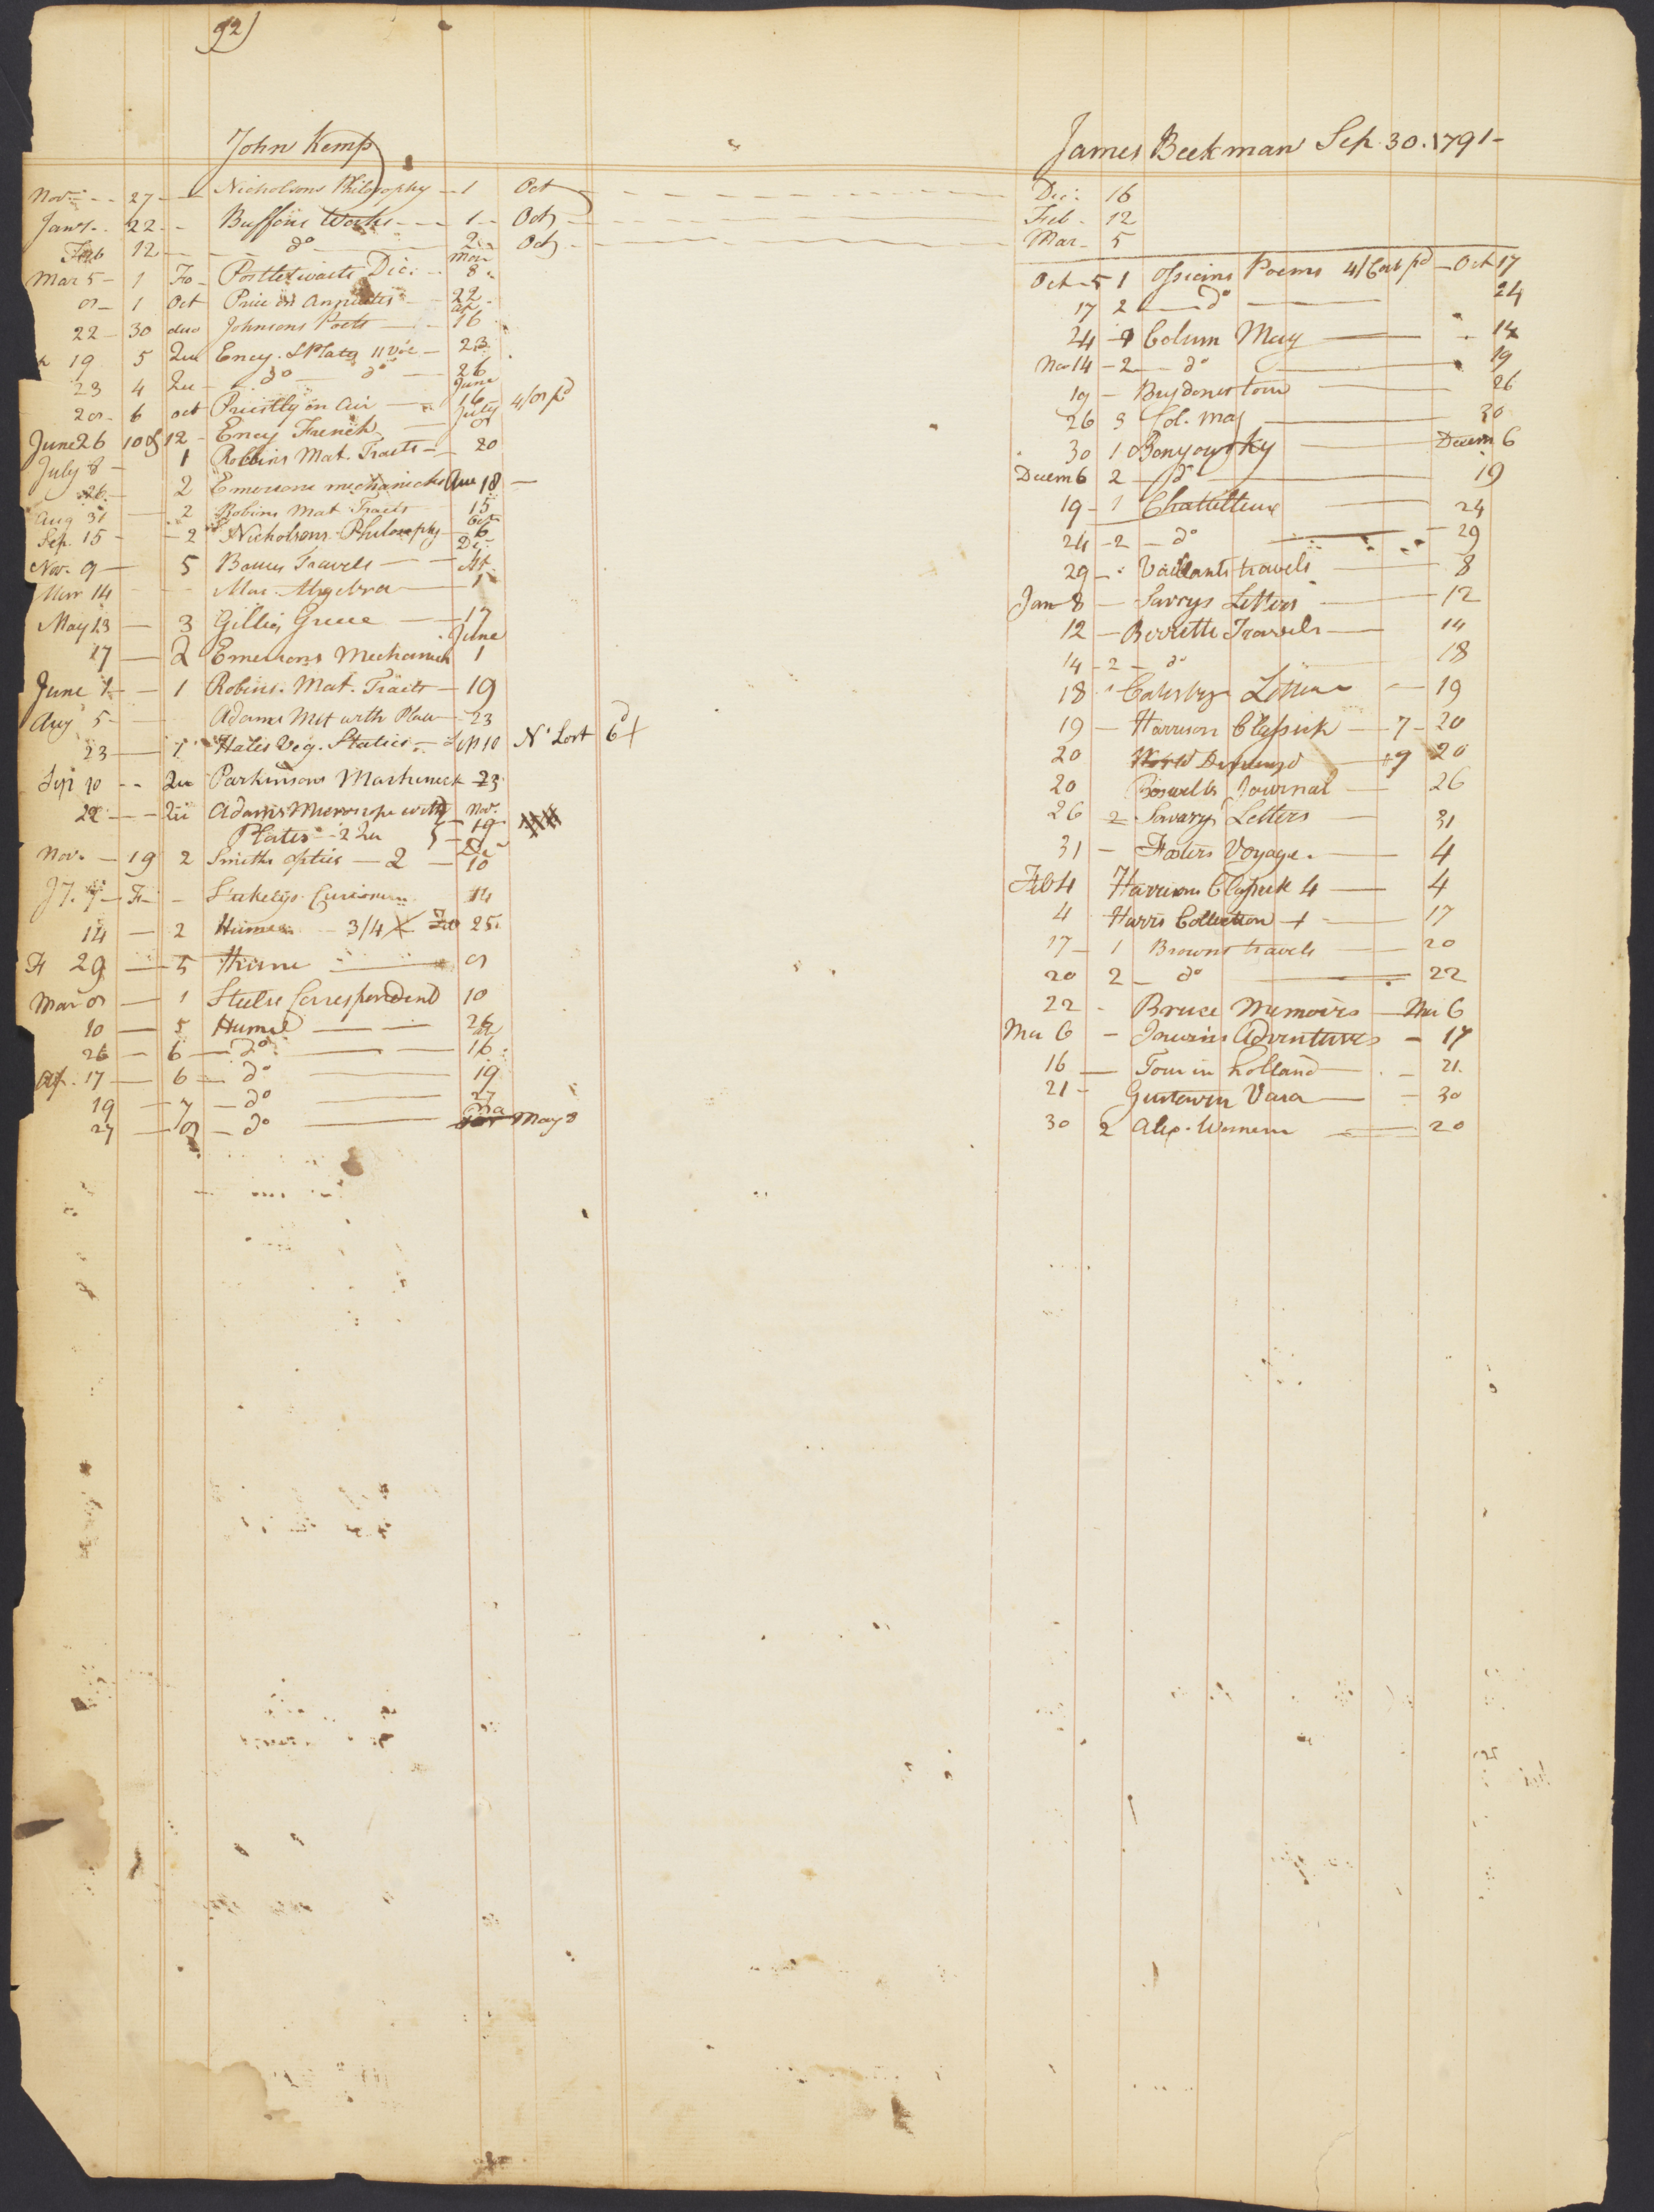 92)
John Kemp
Nov. 27 Nicholsons Philosophy 1 Oct Dec. 16
Jany. 22 Buffons Works 1 Oct Feb. 12
Feb 12 do 2 Oct Mar. 5
Mar 5 1 Fo Postletwaits Dic. Mar 8
8 1 Oct Price on Annuities 22
22 30 duo Johnsons Poets Ap 16
19 5 Qu Ency. & Plats 11 Vol 23
23 4 Qu do do 26
28 6 oct Priestly on Air June 16 4/8 pd
June 26 10 & 12 Ency French July 8
July 8 1 Robbins Mat. Tracts 20
26 2 Emersons mechanicks Aug 18
Aug 31 2 Robins Mat Tracts 15
Sep. 15 2 Nicholsons Philosophy Oct 6
Nov. 9 5 Bruces Travels Dec
Mar 14 Mac. Algebra Ap. 1
May 13 3 Gillies Greece 17
17 2 Emersons Mechanicks June 1
June 1 1 Robins. Mat. Tracts 19
Aug 5 Adams Mic with Plates 23
23 1 Hales Veg. Statics Sep 10 Nt Lost 6d
Sep 10 Qu Parkinsons Mechanick 23
22 Qu Adams Microscope with Nov.
Plates 2 Qu 19
Nov. 19 2 Smiths optics 2 Dec 10
J. 7 Fo Stukelys Curiosum 14
14 2 Humes 3/4 Feb 25
29 5 Hume 8
Mar 8 1 Steeles Correspondent 10
10 5 Hume 26
26 6 do 16
Ap. 17 6 do 19
19 7 do 27
27 8 do May 8
James Beekman Sep. 30. 1791
Oct 5 1 Ossians Poems 4/ Cat pd Oct 17
17 2 do 24
24 1 Colum Mag 14
Nov 14 2 do 19
19 Brydones tour 26
26 3 Col. Mag 30
30 1 Benyousky Decem 6
Decem 6 2 do 19
19 1 Chattelleux 24
24 2 do 29
29 Vaillants travels 8
Jan 8 Savrys Letters 12
12 Berretti Travels 14
14 2 do 18
18 Catesbys Letters 19
19 Harrison Classick 7 20
20 World Displayd 9 20
20 Boswells Journal 26
26 2 Savarys Letters 31
31 Fosters Voyage 4
Feb 4 Harrisons Classick 4 4
4 Harris Collection 1 17
17 1 Browns travels 20
20 2 do 22
22 Bruce Memoirs Mar 6
Mar 6 Adventures 17
16 Tour in holland 21
21 Gustavus Vasa 30
30 2 Alex. Womens 20